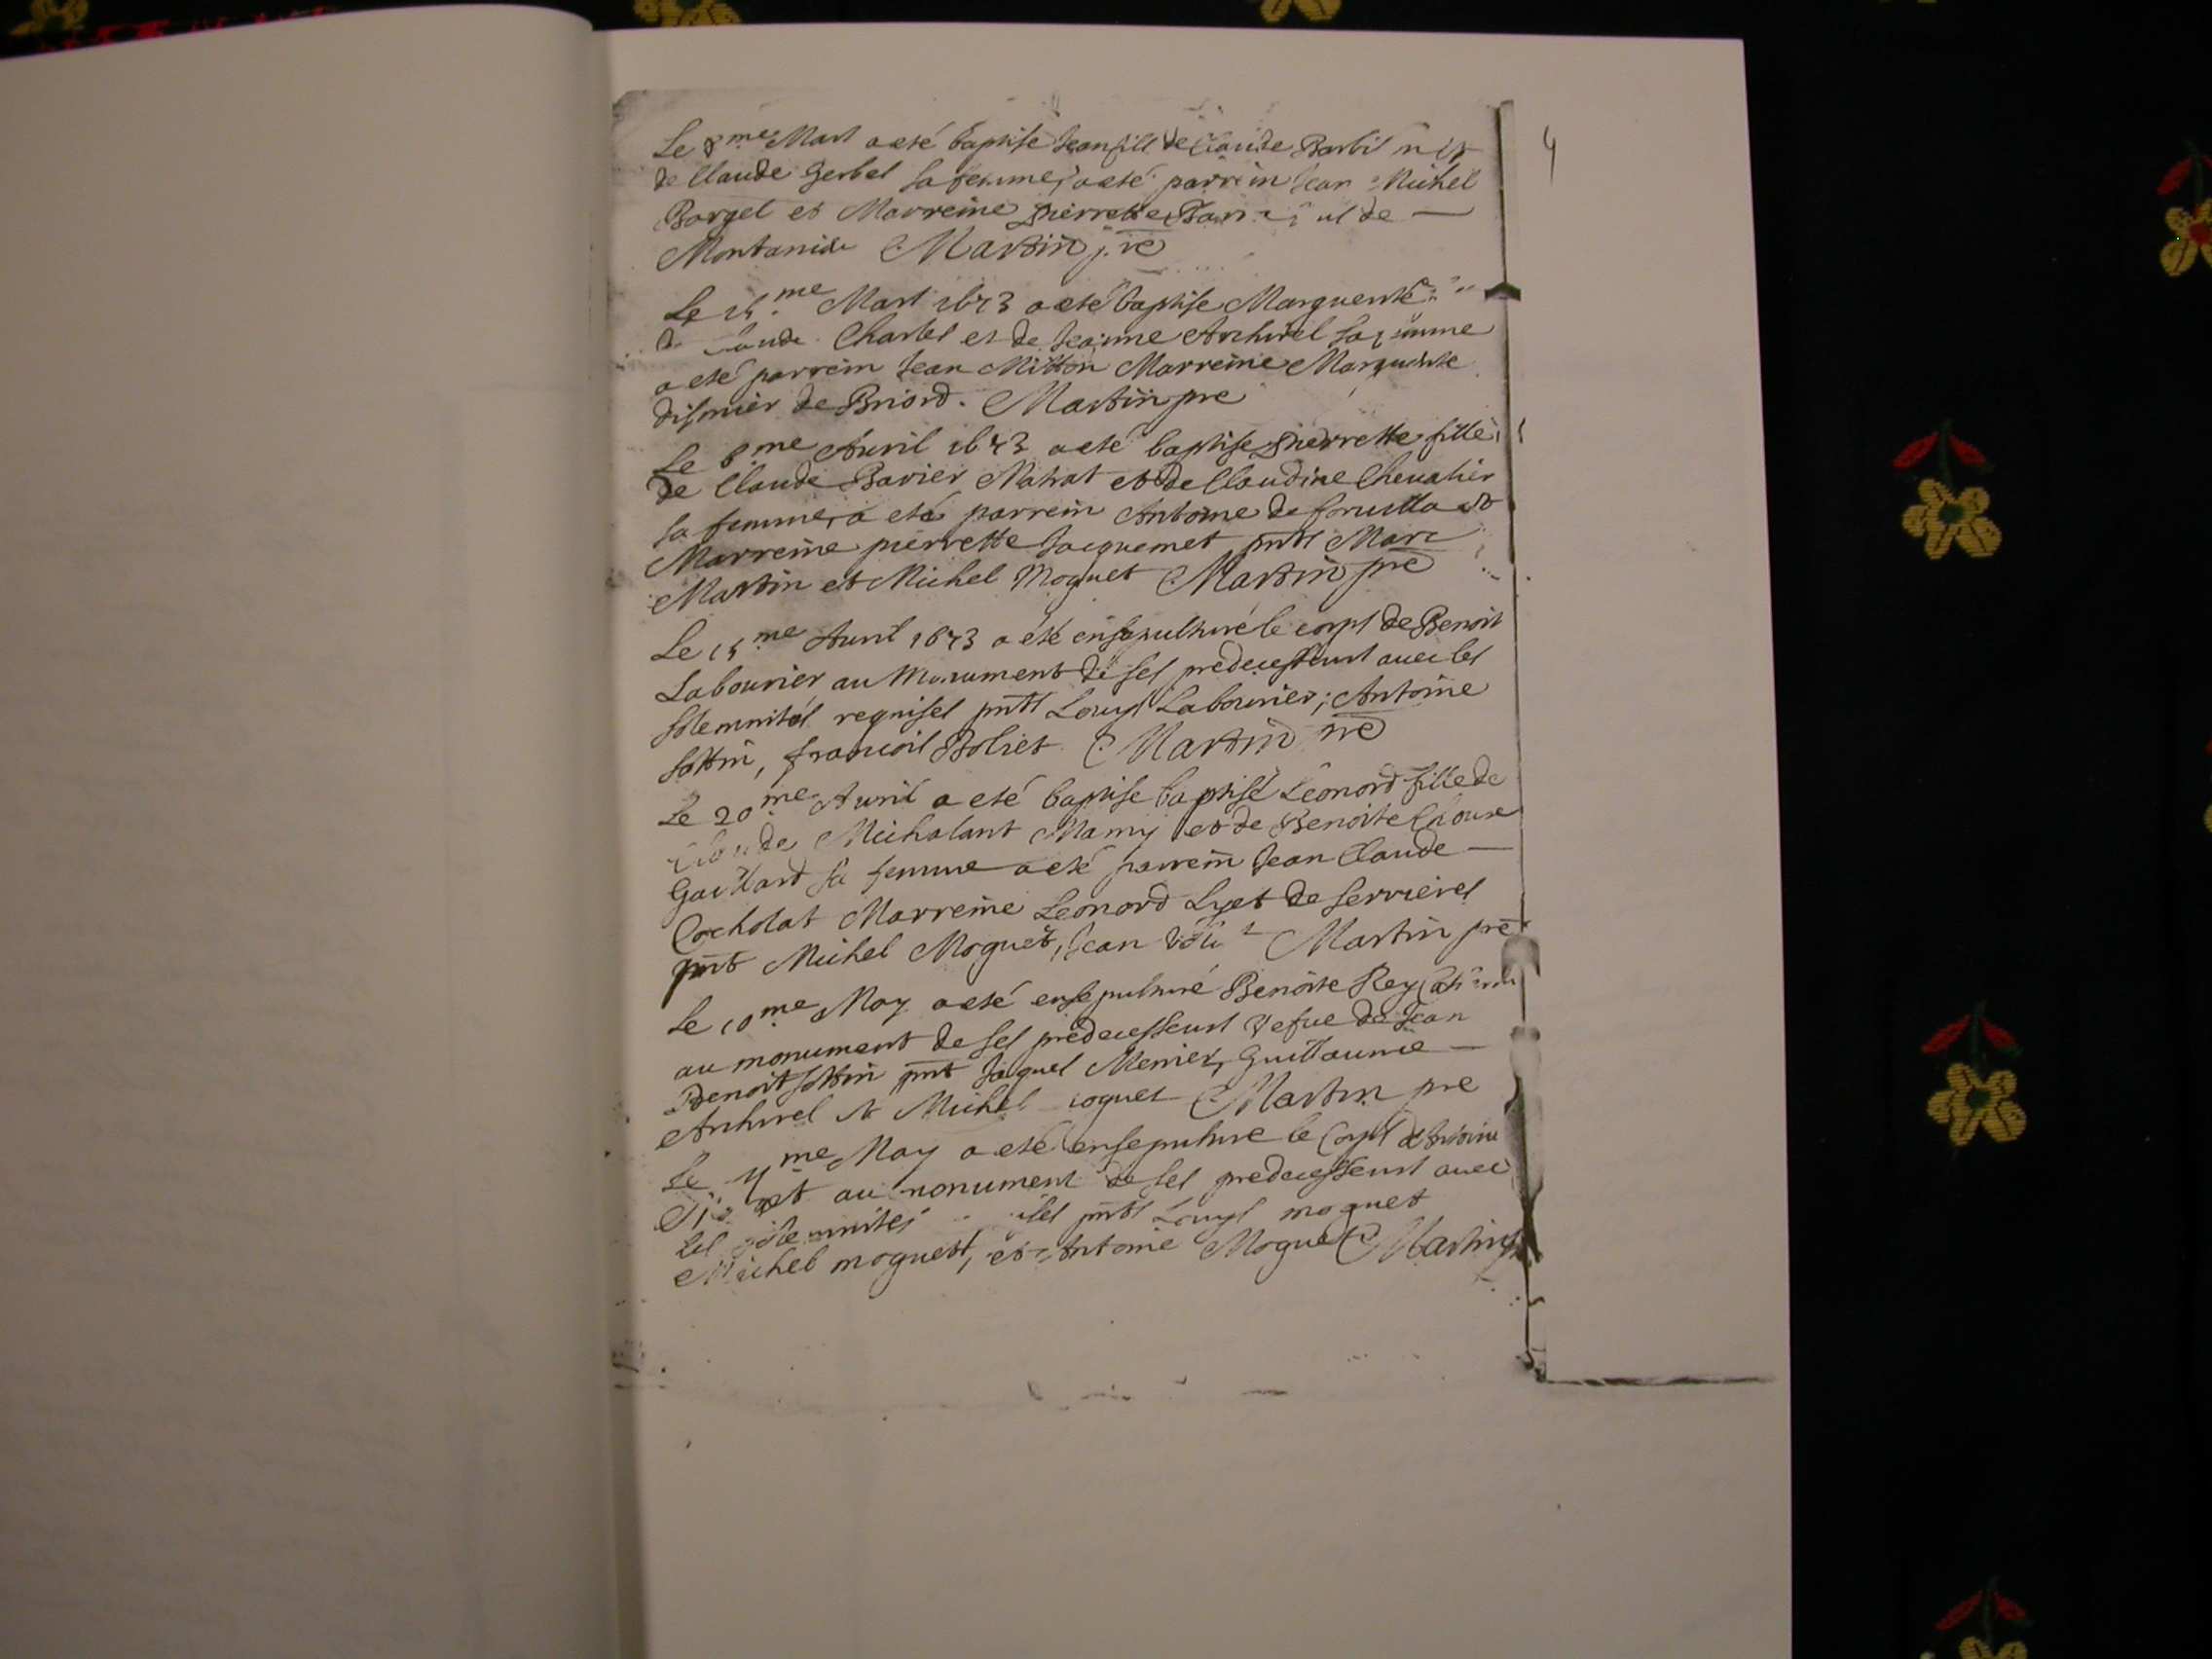 4
Le 8me Mars a esté baptisé Jean fils de Claude
de Claude Gerbel sa femme, a esté parrein Jean Michel
Borgel et Marreine pierrette de
Martin pre
Le 15me Mars 1673 a esté baptisé Marguerite
Charles et de Jeanne Archirel sa femme
a esté parrein Jean Mitton Marreine Marguerite
de Briord. Martin pre
Le 8me Auril 1673 a esté baptisé pierrette fille
de Claude Barier Nahat et de Claudine Cheualier
sa femme, a esté parrein Antoine de et
Marreine pierrette Jacquemet pnts Marc
Martin et Michel Moguet Martin pre
Le 15me Auril 1673 a esté ensepulturé le corps de Benoit
Labourier au Monument de ses predecesseurs auec les
solemnités requises pnts Louys Labourier, Antoine
sottin, francois Boliet Martin pre
Le 20me Auril a esté baptisé baptisé Leonord fille de
Claude Michalant Mamy et de Benoite
Gaillard sa femme a esté parrein Jean Claude
Cocholat Marreine Leonord Lyet de serrieres
pnt Michel Moguet, Jean Martin pre
Le 10me May a esté ensepulturé Benoite Rey
au monument de ses predecesseurs vefue de Jean
Benoit sottin pnt Jaques Menier, Guillaume
Archirel & Michel Martin pre
Le me May a esté ensepulturé le Corps d'Antoine
au monument de ses predecesseurs auec
les solemnités pnts Louys moguet
Michel moguet, et Antoine Moguet Martin